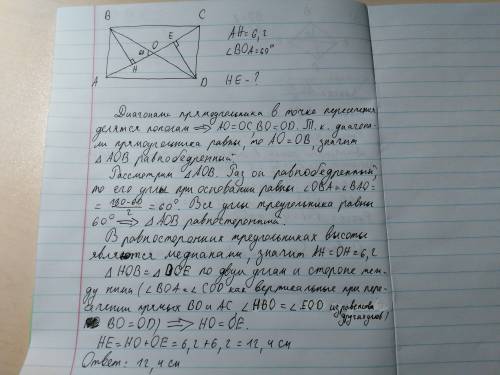 B
C
E
O
60
H
A
D
AH = 6,2
∠BOA = 60°
HE - ?
Диагонали прямоугольника в точке пересечения
делятся пополам ⟹ AO=OC, BO=OD. Т.к. диагона-
ли прямоугольника равны, то AO=OB, значит
△AOB равнобедренный.
Рассмотрим △AOB. Раз он равнобедренный,
то его углы при основании равны ∠OBA=∠BAO=
= 180-60/2 = 60°. Все углы треугольника равны
60° ⟹ △AOB равносторонний.
В равносторонних треугольниках высоты
являются медианами, значит AH=OH=6,2
△HOB=△DOE по двум углам и стороне меж-
ду ними (∠BOA=∠COD как вертикальные при пере-
сечении прямых BO и AC, ∠HBO=∠EOD из равенства
других углов)
BO=OD) ⟹ HO=OE.
HE=HO+OE=6,2+6,2=12,4 см
Ответ: 12,4 см